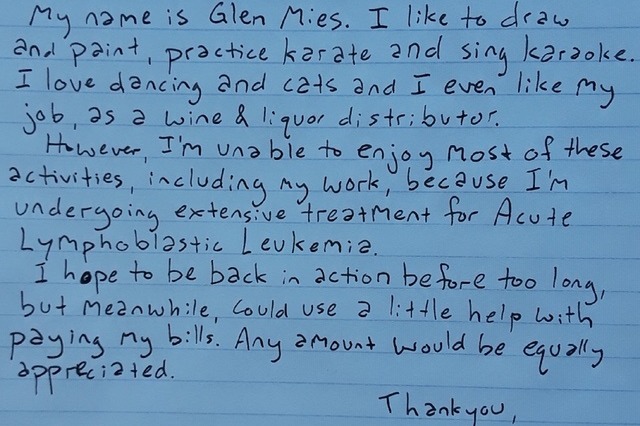 My name is Glen Mies. I like to draw
and paint, practice karate and sing karaoke.
I love dancing and cats and I even like my
job, as a wine & liquor distributor.
However, I'm unable to enjoy most of these
activities, including my work, because I'm
undergoing extensive treatment for Acute
Lymphoblastic Leukemia.
I hope to be back in action before too long,
but meanwhile, could use a little help with
paying my bills. Any amount would be equally
appreciated.
Thankyou,